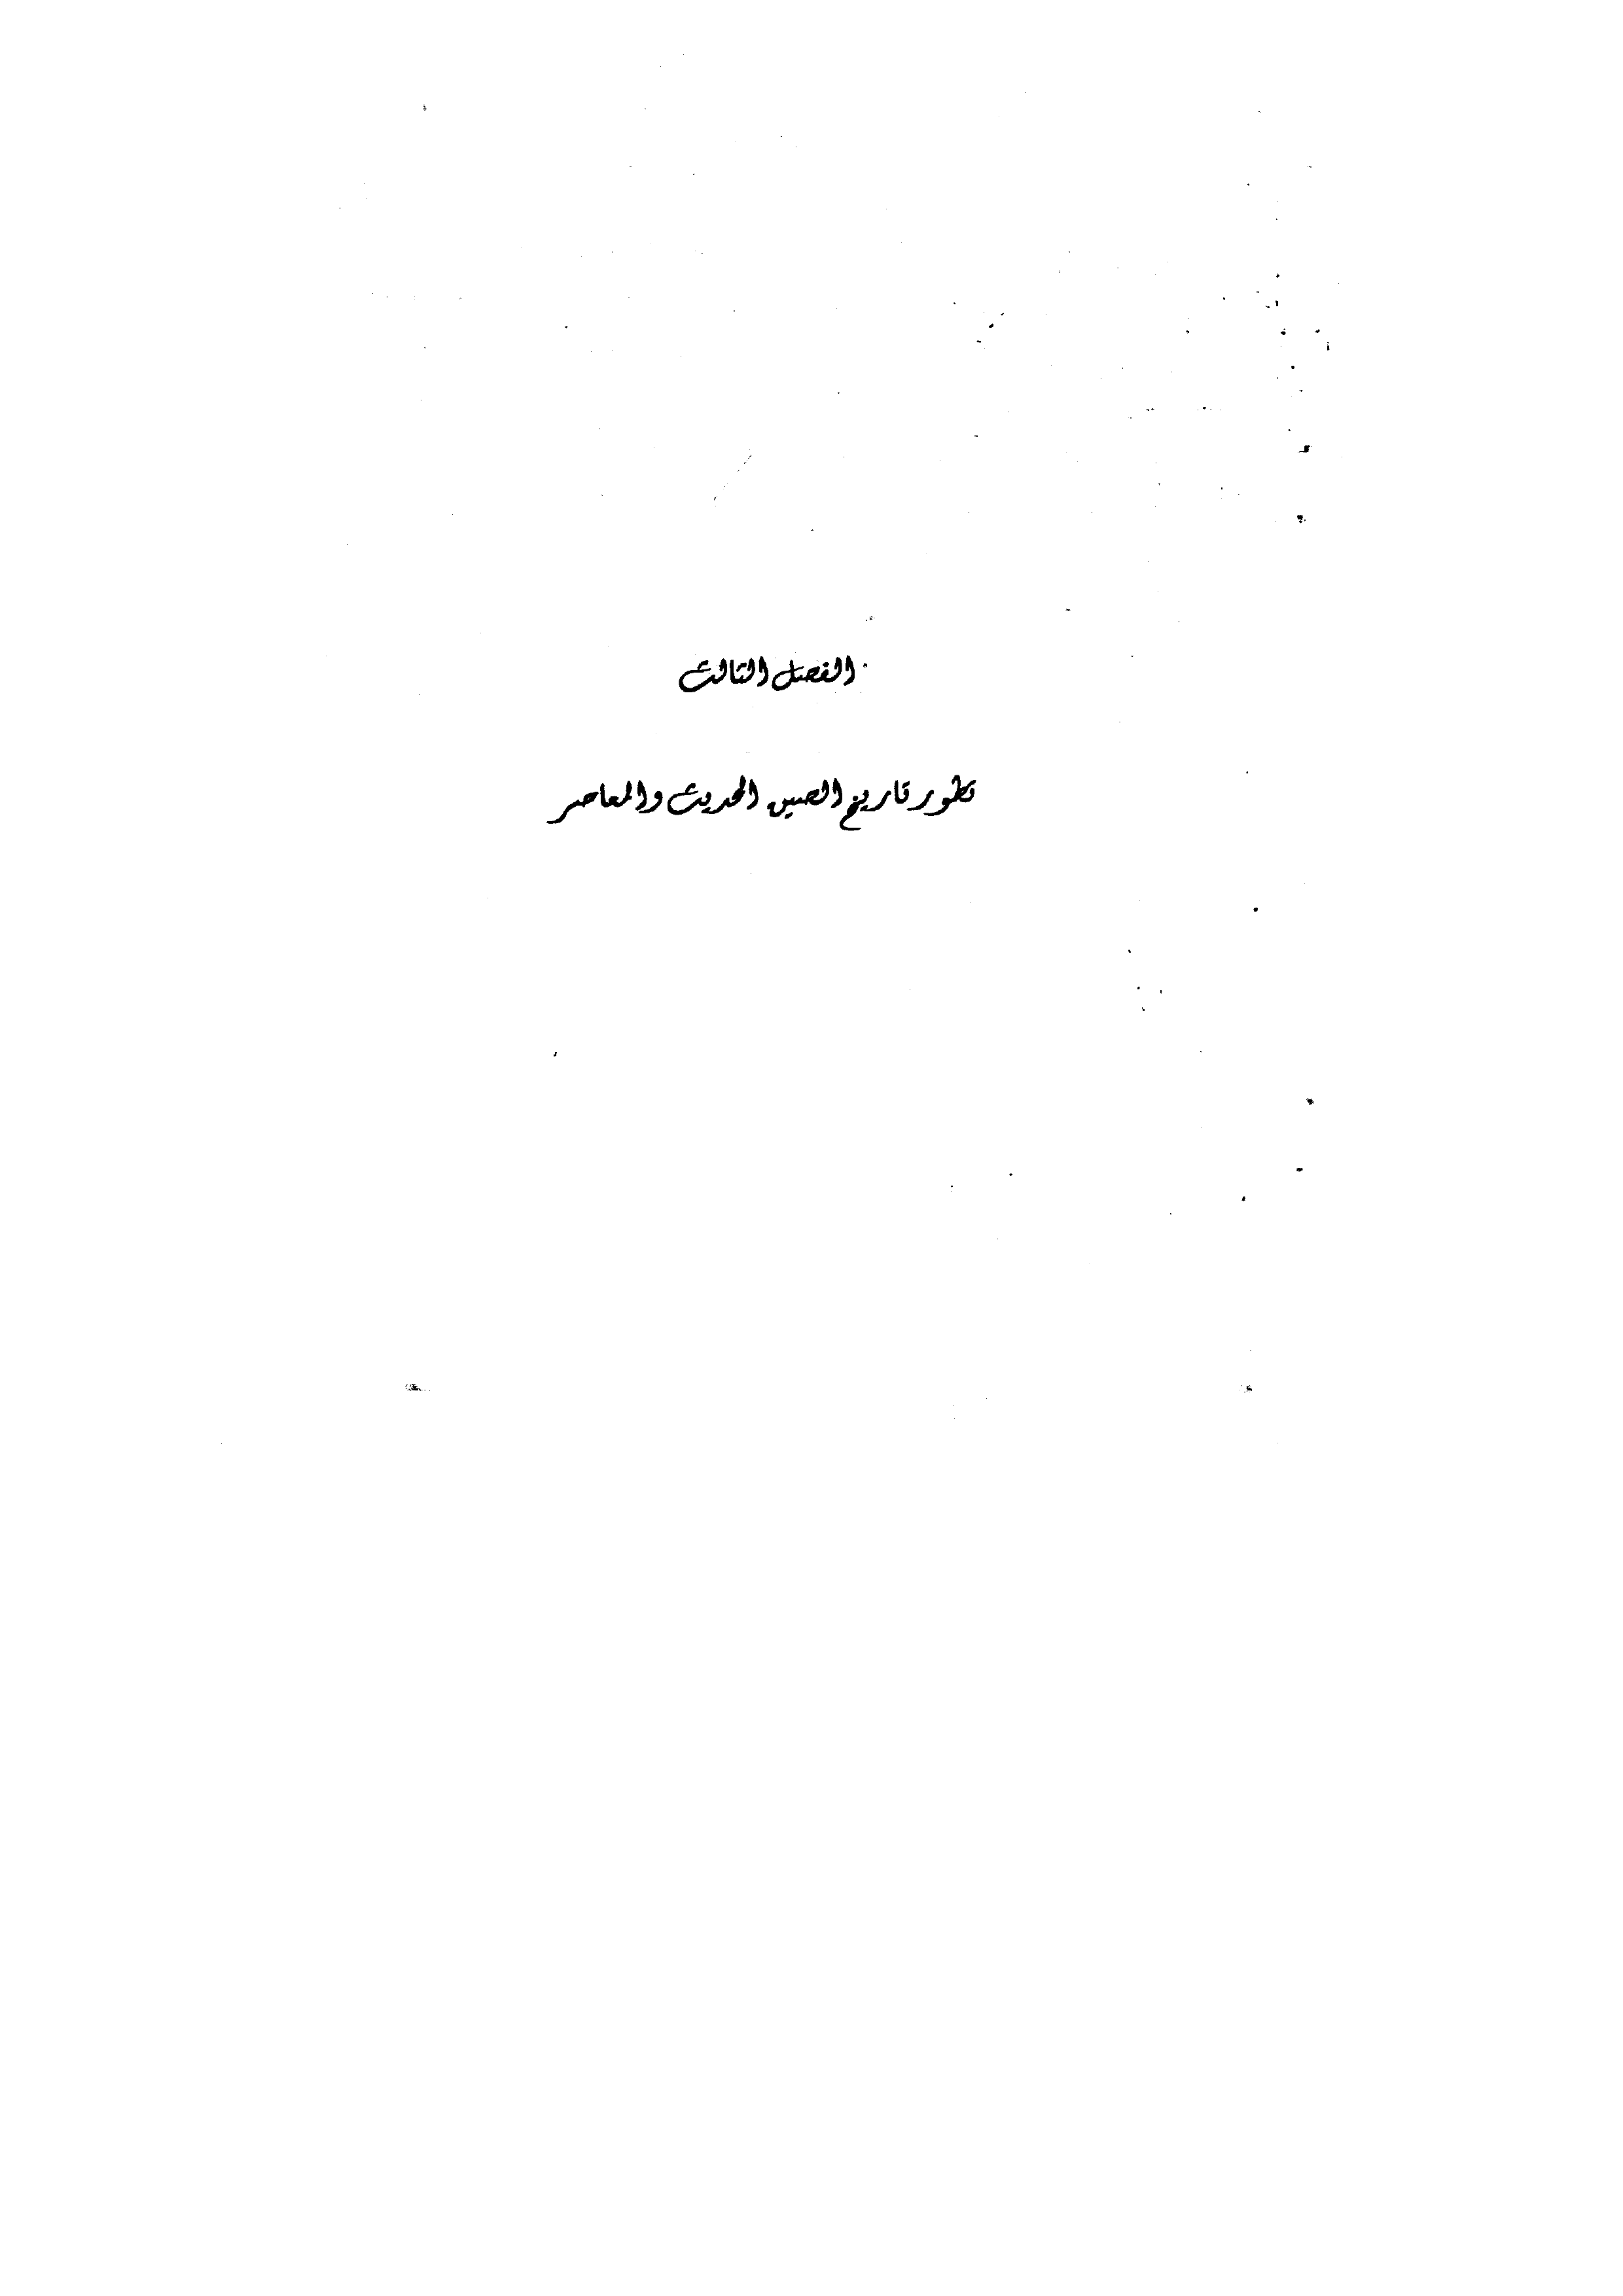 الفصل الثالث
تطور تاريخ الصين الحديث والمعاصر